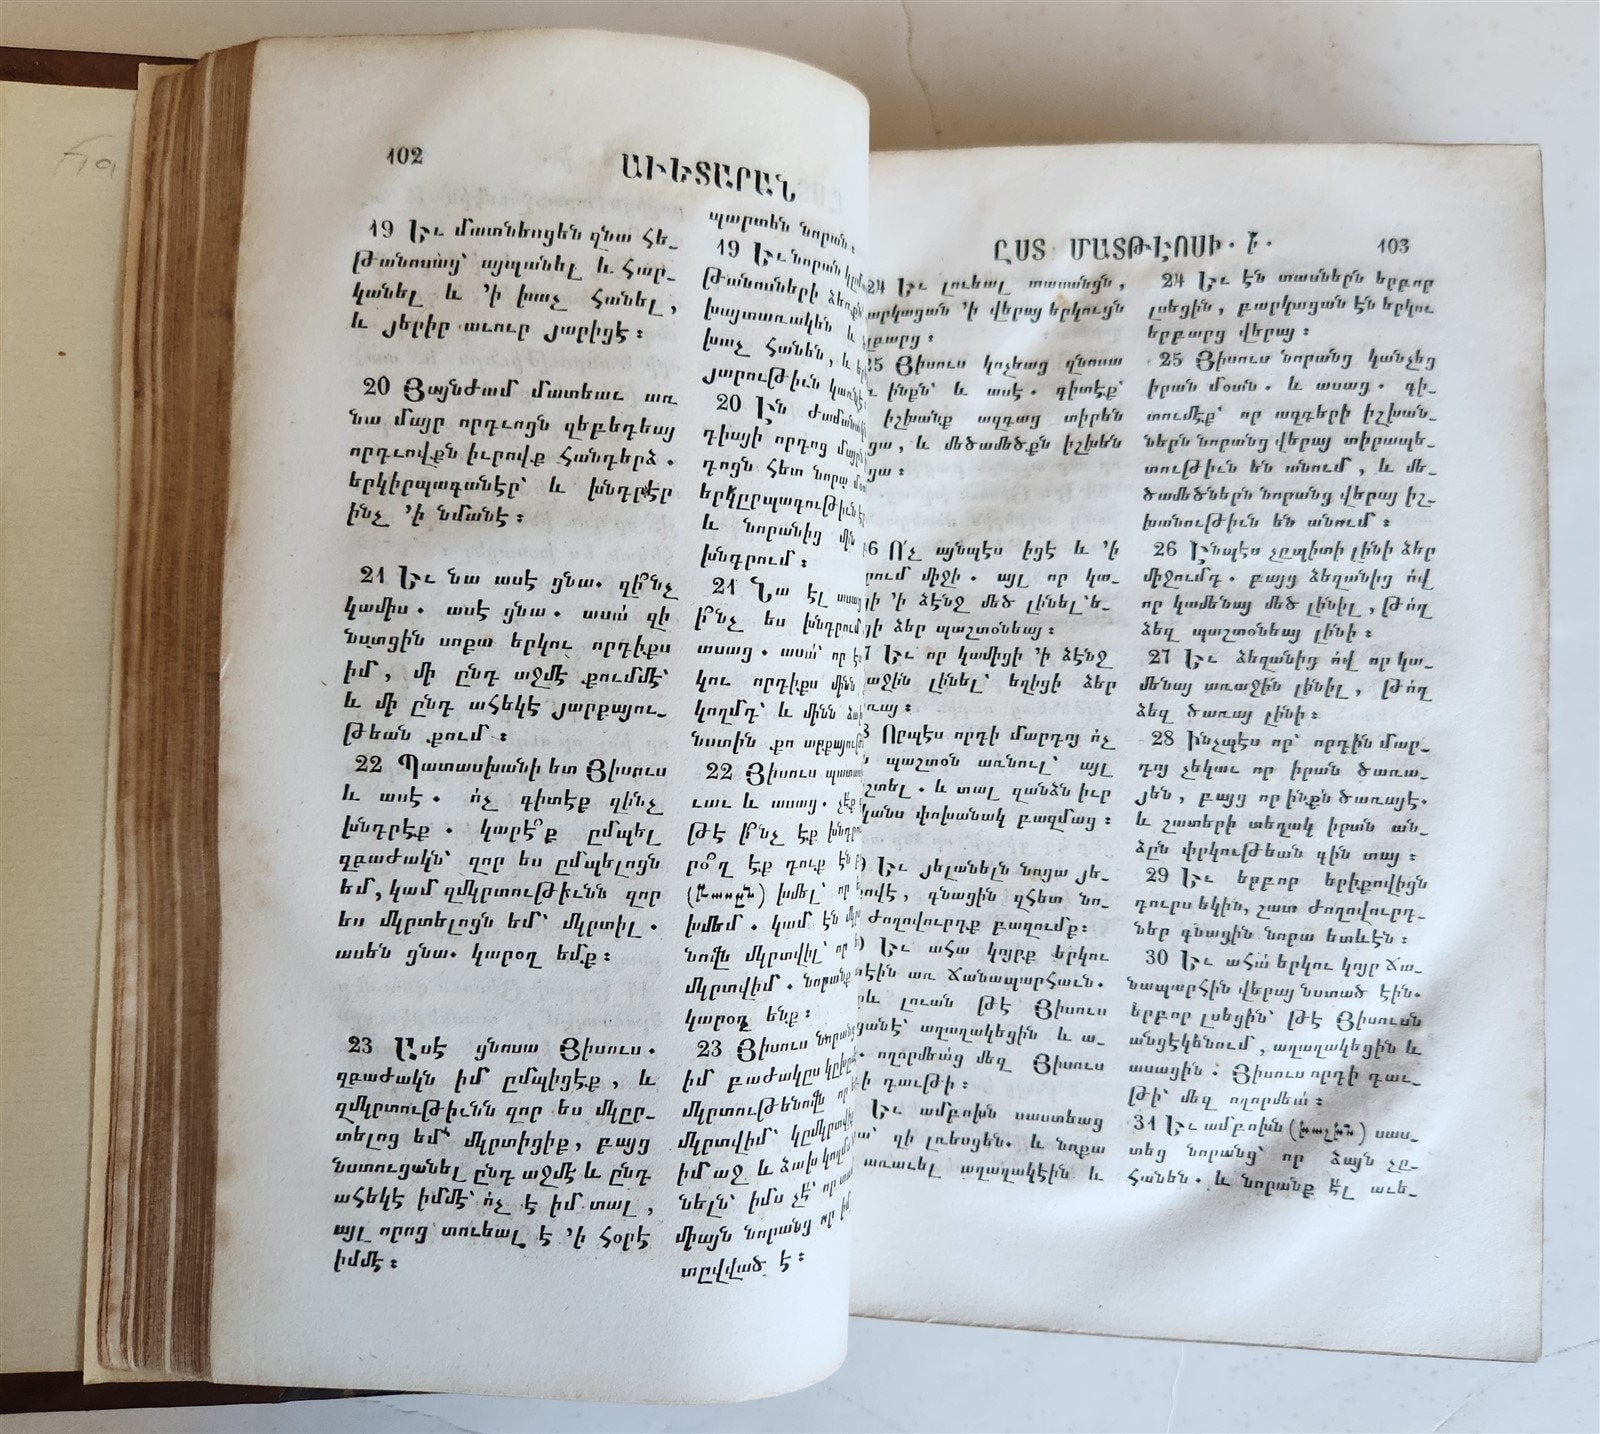 102
ԱՒԵՏԱՐԱՆ
19 Եւ մատնեսցեն զնա հե-
թանոսաց՝ այպանել և հար-
կանել և ՚ի խաչ հանել,
և յերիր աւուր յարիցէ։
20 Յայնժամ մատեաւ առ
նա մայր որդւոցն զեբեդեայ
որդւովքն իւրովք հանդերձ.
երկիրպագանէր՝ և խնդրէր
ինչ ՚ի նմանէ։
21 Եւ նա ասէ ցնա. զի՞նչ
կամիս. ասէ ցնա. ասա՛ զի
նստցին սոքա երկու որդիքս
իմ, մի ընդ աջմէ քումմէ՝
և մի ընդ ահեկէ յարքայու-
թեան քում։
22 Պատասխանի ետ Յիսուս
և ասէ. ո՛չ գիտէք զինչ
խնդրէք. կարէ՞ք ըմպել
զբաժակն՝ զոր ես ըմպելոցն
եմ, կամ զմկրտութիւնն զոր
ես մկրտելոցն եմ՝ մկրտիլ.
ասեն ցնա. կարօղ եմք։
23 Ասէ ցնոսա Յիսուս.
զբաժակն իմ ըմպիցէք, և
զմկրտութիւնն զոր ես մկըր-
տելոց եմ՝ մկրտիցիք, բայց
նստուցանել ընդ աջմէ և ընդ
ահեկէ իմմէ՝ ո՛չ է իմ տալ,
այլ որոց տուեալ է ՚ի հօրէ
իմմէ։
պարտեն նորան։
19 Եւ նորան
թանոսների
խայտառակեն և
խաչ հանեն, և
յարութիւն
20 Էն
դիայի որդոց
դոցն հետ նորա
երկըրպագութիւն
և նորանից մին
խնդրում։
21 Նա էլ ասաց
ի՞նչ ես խնդրում
ասաց. ասա՛ որ
կու որդիքս մինն
կողմդ՝ և մինն
նստին քո
22 Յիսուս
ւաւ և ասաց.
թէ ի՞նչ էք
րօ՞ղ էք դուք էն
խմել՝ որ
խմեմ. կամ էն
նովն մկրտվիլ՝ որ
մկրտվիմ. նորանք
կարօղ ենք։
23 Յիսուս նորանց
իմ բաժակըս
մկրտութենովն որ
մկրտվիմ՝
իմ աջ և ձախ
նելն՝ իմս չէ՝ որ
միայն նորանց որ
տըվված է։
ԸՍՏ ՄԱՏԹԷՈՍԻ. Ի.
103
24 Եւ լուեալ տասանցն,
բարկացան ՚ի վերայ երկուցն
եղբարց։
25 Յիսուս կոչեաց զնոսա
ինքն՝ և ասէ. գիտէք՝
իշխանք ազգաց տիրեն
և մեծամեծքն իշխեն
26 Ո՛չ այնպէս իցէ և ՚ի
միջի. այլ որ կա-
՚ի ձէնջ մեծ լինել՝ ե-
ձեր պաշտօնեայ։
Եւ որ կամիցի ՚ի ձէնջ
լինել՝ եղիցի ձեր
Որպէս որդի մարդոյ ո՛չ
պաշտօն առնուլ՝ այլ
և տալ զանձն իւր
փոխանակ բազմաց։
Եւ յելանելն նոցա յե-
գնացին զհետ նո-
ժողովուրդք բազումք։
Եւ ահա կոյրք երկու
առ ճանապարհաւն.
լուան թէ Յիսուս
աղաղակեցին և ա-
ողորմեա՛ց մեզ Յիսուս
դաւթի։
Եւ ամբոխն սաստեաց
զի լռեսցեն. և նոքա
առաւել աղաղակէին և
24 Եւ էն տասներն երբոր
լսեցին, բարկացան էն երկու
եղբարց վերայ։
25 Յիսուս նորանց կանչեց
իրան մօտն. և ասաց. գի-
տումէք՝ որ ազգերի իշխան-
ներն նորանց վերայ տիրապե-
տութիւն են անում, և մե-
ծամեծներն նորանց վերայ իշ-
խանութիւն են անում։
26 Էնպէս չըպիտի լինի ձեր
միջումդ. բայց ձեզանից ո՛վ
որ կամենայ մեծ լինիլ, թո՛ղ
ձեզ պաշտօնեայ լինի։
27 Եւ ձեզանից ո՛վ որ կա-
մենայ առաջին լինիլ, թո՛ղ
ձեզ ծառայ լինի։
28 Ինչպէս որ՝ որդին մար-
դոյ չեկաւ որ իրան ծառա-
յեն, բայց որ ինքն ծառայէ.
և շատերի տեղակ իրան ան-
ձըն փրկութեան գին տայ։
29 Եւ երբոր երիքովիցն
դուրս եկին, շատ ժողովուրդ-
ներ գնացին նորա ետևէն։
30 Եւ ահա՛ երկու կոյր ճա-
նապարհին վերայ նստած էին.
երբոր լսեցին՝ թէ Յիսուսն
անցէկենում, աղաղակեցին և
ասացին. Յիսուս որդի դաւ-
թի՝ մեզ ողորմեա՛։
31 Եւ ամբոխն (խալխն) սաս-
տեց նորանց՝ որ ձայն չը-
հանեն. և նորանք էլ աւե-